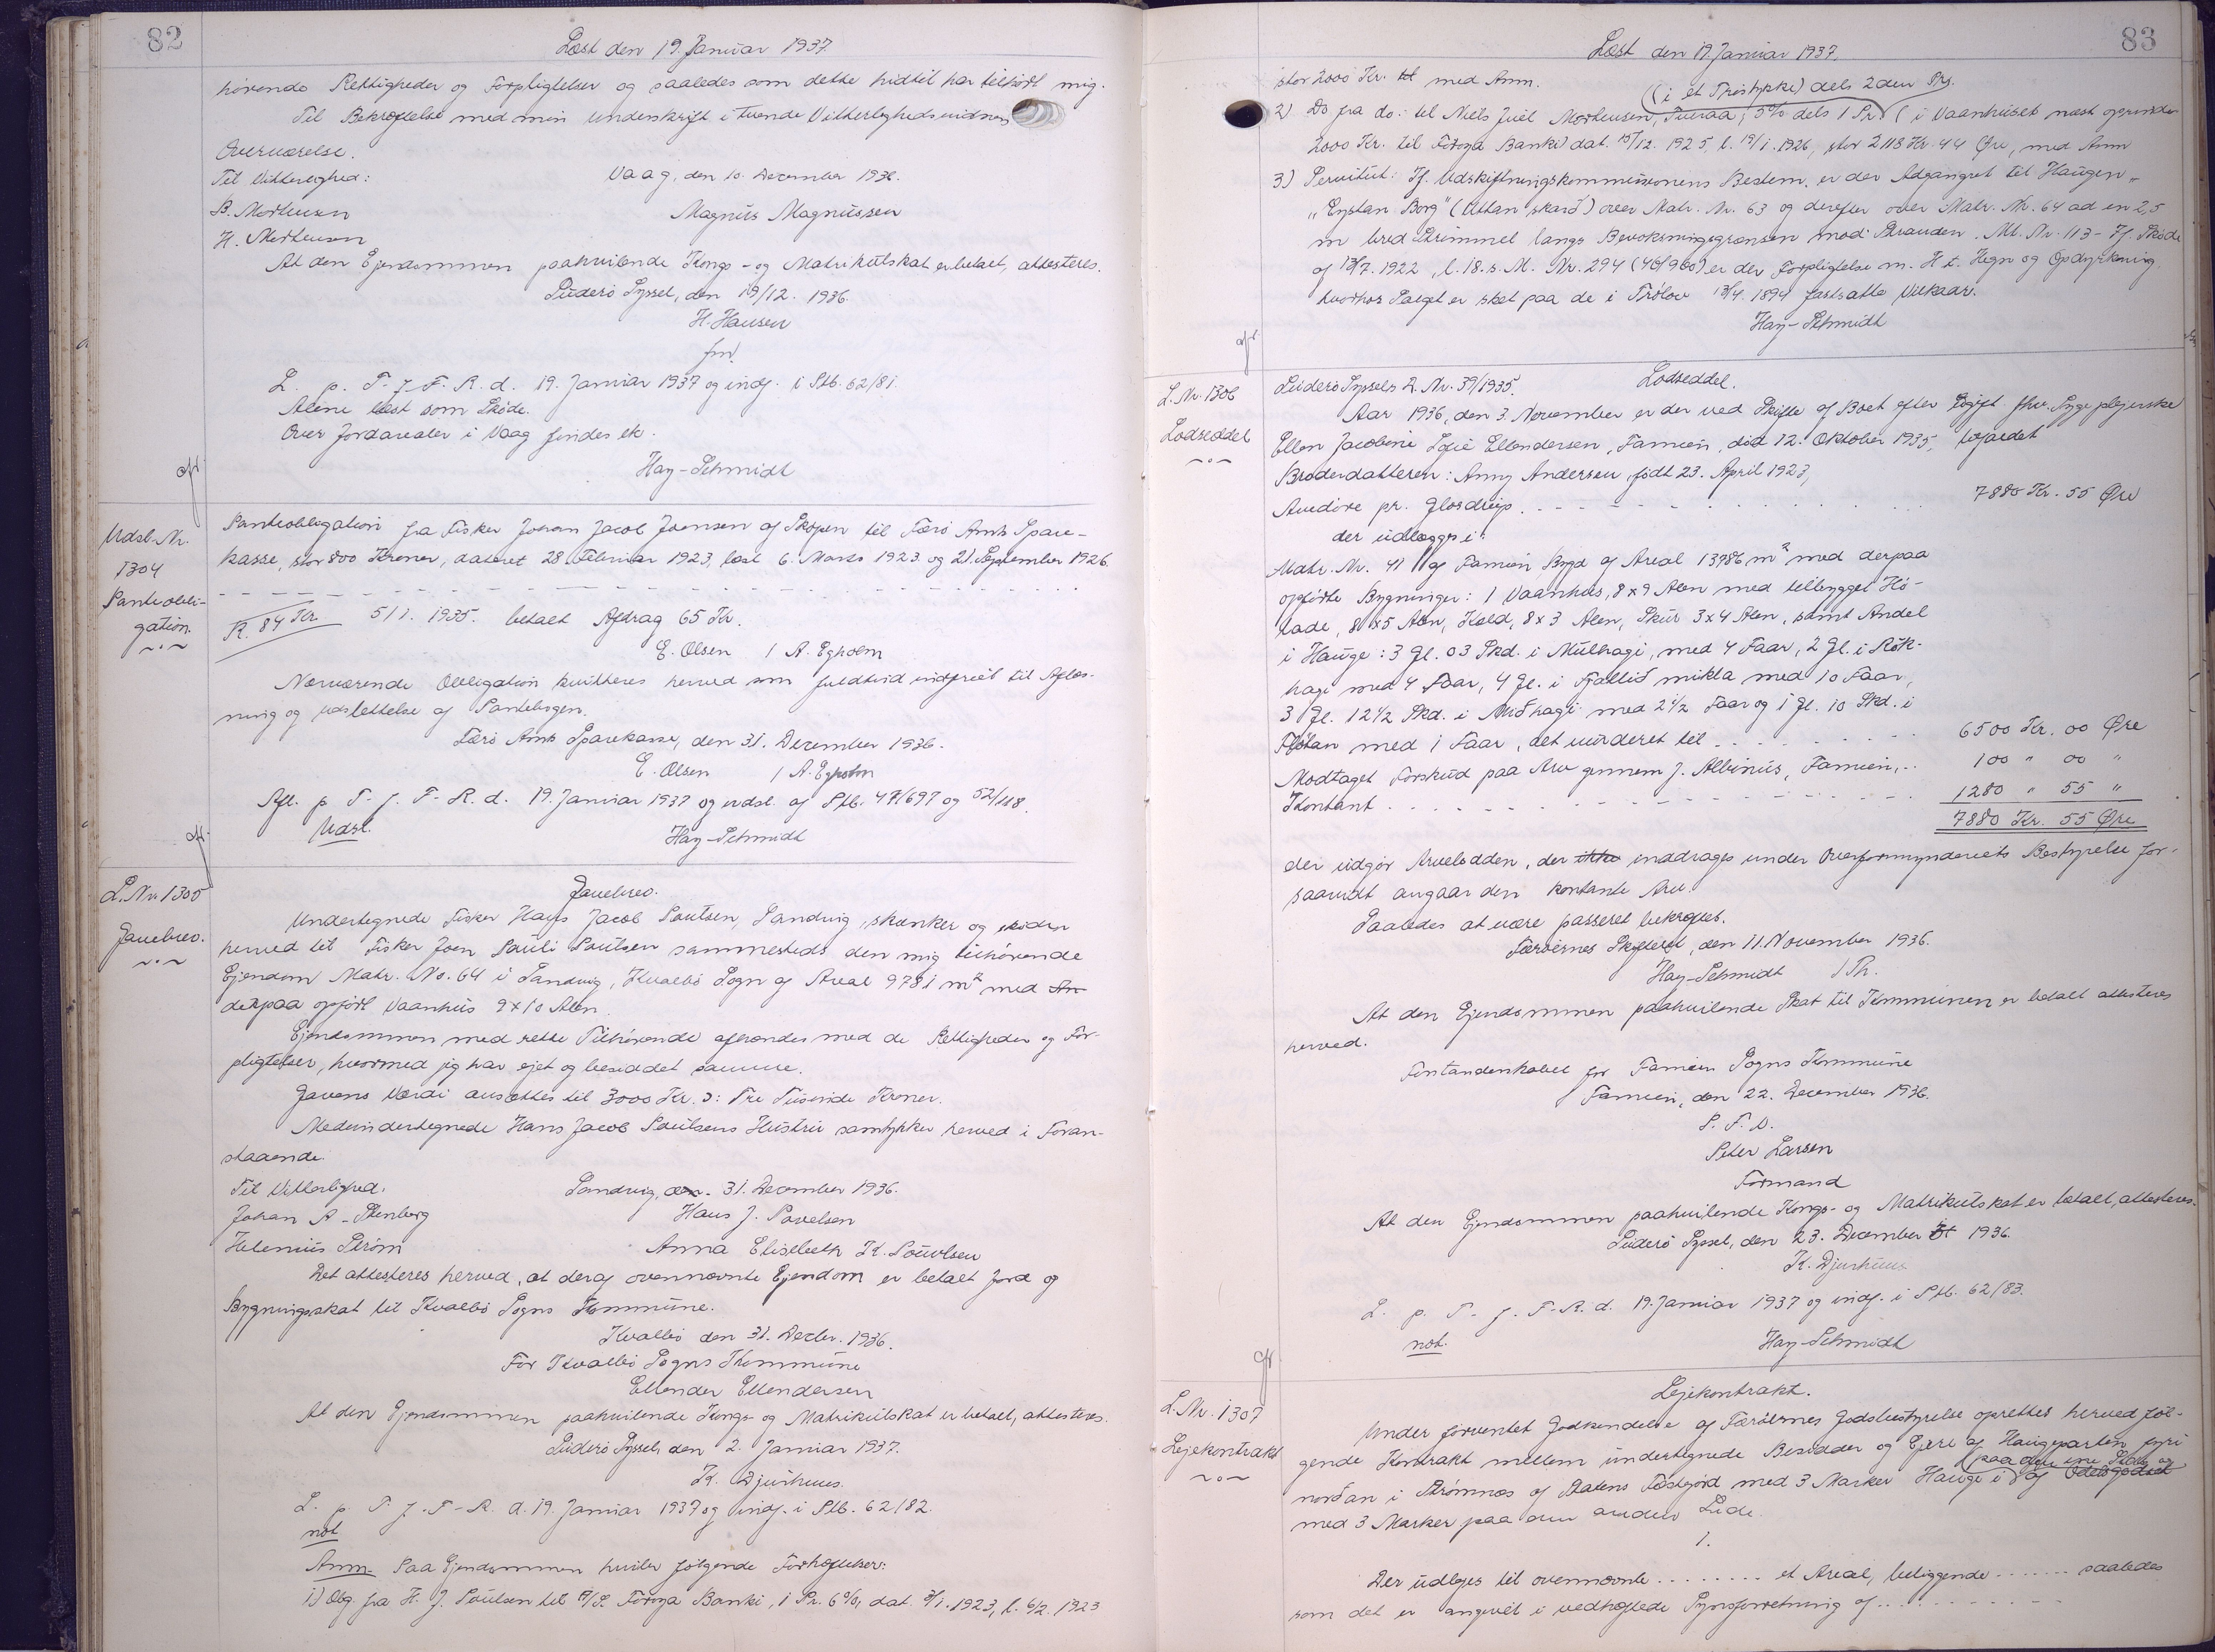 82
Læst den 19. Januar 1937.
hørende Rettigheder og Forpligtelser og saaledes som dette hidtil har tilhørt mig.
Til Bekræftelse med min Underskrift i tvende Vitterlighedsvidners
Overværelse.
Til Vitterlighed:
Vaag, den 10. December 1936.
B. Mortensen
Magnus Magnussen
H. Mortensen
At den Ejendommen paahvilende Kongs- og Matrikulskat er betalt, attesteres.
Suderø Syssel, den 19/12. 1936.
H. Hansen
fm.
L. p. T. f. F. R. d. 19. Januar 1937 og indf. i Sktb. 62/81.
Alene læst som Skøde.
Over Jordarealer i Vaag findes ek.
Hay-Schmidt
Udsl. Nr.
1304
Panteobli-
gation.
Panteobligation fra Fisker Johan Jacob Joensen af Skopen til Færø Amts Spare-
kasse, stor 800 Kroner, dateret 28. Februar 1923, læst 6. Marts 1923 og 21. September 1926.
R. 84 Kr. 5/1. 1935. betalt Afdrag 65 Kr.
E. Olsen / A. Egholm
Nærværende Obligation kvitteres herved som fuldtud indfriet til Aflæs-
ning og Udslettelse af Pantebogen.
Færø Amts Sparekasse, den 31. December 1936.
E. Olsen / A. Egholm
Afl. p. T. f. F. R. d. 19. Januar 1937 og udsl. af Sktb. 47/697 og 52/118.
Udsl.
Hay-Schmidt
L. Nr. 1305
Gavebrev.
Gavebrev.
Undertegnede Fisker Hans Jacob Poulsen, Sandvig, skænker og skøder
herved til Fisker Joen Pauli Poulsen sammesteds den mig tilhørende
Ejendom Matr. No. 64 i Sandvig, Kvalbø Sogn af Areal 9781 m² med An
derpaa opført Vaanhus 9 x 10 Alen.
Ejendommen med rette Tilhørende afhændes med de Rettigheder og For-
pligtelser, hvormed jeg har ejet og besiddet samme.
Gavens Værdi ansættes til 3000 Kr. ɔ: Tre Tusinde Kroner.
Medundertegnede Hans Jacob Poulsens Hustru samtykker herved i Foran-
staaende.
Til Vitterlighed.
Sandvig, den. 31. December 1936.
Johan A. Stenberg
Hans J. Povelsen
Helenius Strøm
Anna Elisebeth K. Poulsen
Det attesteres herved, at der af ovennævnte Ejendom er betalt Jord og
Bygningsskat til Kvalbø Sogns Kommune.
Kvalbø den 31. Decbr. 1936.
For Kvalbø Sogns Kommune
Ellender Ellendersen
At den Ejendommen paahvilende Kongs- og Matrikulskat er betalt, attesteres.
Suderø Syssel, den 2. Januar 1937.
K. Djurhuus.
L. p. T. f. F. R. d. 19. Januar 1937 og indf. i Sktb. 62/82.
not
Anm. Paa Ejendommen hviler følgende Forhæftelser:
1) Obg. fra H. J. Poulsen til A/S. Føroya Banki, 1 Pr. 6%, dat. 3/1. 1923, l. 6/2. 1923
83
Læst den 19. Januar 1937.
stor 2000 Kr. tt med Anm.
(i et Træstykke) dels 2den Pr.
2) Do fra do: til Niels Juel Mortensen, Tveraa, 5% dels 1 Pr. (i Vaanhuset næst oprindel.
2000 Kr. til Føroya Banki) dat. 15/12. 1925, l. 19/1. 1926, stor 2118 Kr. 44 Øre, med Anm
3) Servitut: Tf. Udskiftningskommissionens Bestem. er der Adgangsret til Haugen "
"Eystan Borg" (Uttan skarð) over Matr. Nr. 63 og derefter over Matr. Nr. 64 ad en 2,5
m bred Strimmel langs Bevoksningsgrænsen mod Stranden. M. Nr. 113 - Tf. Skøde
af 13/7. 1922, l. 18. s. M. Nr. 294 (40/960) er der Forpligtelse m. H. t. Hegn og Opdyrkning
hvorhos Salget er sket paa de i Frølov 13/4. 1894 fastsatte Vilkaar.
Hay-Schmidt
L. Nr. 1306
Lodseddel
Lodseddel.
Suderø Syssels D. Nr. 39/1935.
Aar 1936, den 3. November er der ved Skifte af Boet efter Ugift fhv. Sygeplejerske
Ellen Jacobine Sofie Ellendersen, Famien, død 12. Oktober 1935, tilfaldet
Broderdatteren: Anny Andersen, født 23. April 1923,
Avedøre pr. Glostrup. 7880 Kr. 55 Øre
der udlægges i:
Matr. Nr. 41 af Famien Bygd af Areal 13986 m² med derpaa
opførte Bygninger: 1 Vaanhus, 8 x 9 Alen med tilbygget Hø-
lade, 8 x 5 Alen, Kold, 8 x 3 Alen, Skur 3 x 4 Alen, samt Andel
i Hauge: 3 Gl. 03 Skd. i Mulhagi, med 4 Faar, 2 Gl. i Rók-
hagi med 4 Faar, 4 Gl. i Fjallið mikla med 10 Faar,
3 Gl. 12½ Skd. i Miðhagi med 2½ Faar og 1 Gl. 10 Skd. i
Fløtan med 1 Faar, det vurderet til 6500 Kr. 00 Øre
Modtaget Forskud paa Arv gennem J. Albinus, Famien, 100 " 00 "
Kontant 1280 " 55 "
7880 Kr. 55 Øre
der udgør Arvelodden, der ikke inddrages under Overformynderiets Bestyrelse for-
saavidt angaar den kontante Arv.
Saaledes at være passeret bekræftes.
Færøernes Skifteret, den 11. November 1936.
Hay-Schmidt / Th.
At den Ejendommen paahvilende Skat til Kommunen er betalt attesteres
herved.
Forstanderskabet for Famien Sogns Kommune
Famien, den 22. December 1936.
P. F. V.
Peter Larsen
Formand
At den Ejendommen paahvilende Kongs- og Matrikulskat er betalt, attesteres.
Suderø Syssel, den 23. December 1936.
K. Djurhuus
L. p. T. f. F. R. d. 19. Januar 1937 og indf. i Sktb. 62/83.
not.
Hay-Schmidt
L. Nr. 1307
Lejekontrakt
Lejekontrakt.
Under forventet Godkendelse af Færøernes Jordsbestyrelse oprettes herved føl-
gende Kontrakt mellem undertegnede Besidder og Ejere af Haugeparten fyri
(paa den ene Side og
norðan i Strømnæs af Statens Fæstejord med 3 Marker Hauge i af Odelsgodset
med 3 Marker paa den anden Side.
1.
Der udlejes til ovennævnte ........ et Areal, beliggende ....... saaledes
som det er angivet i vedhæftede Synsforretning af ...........